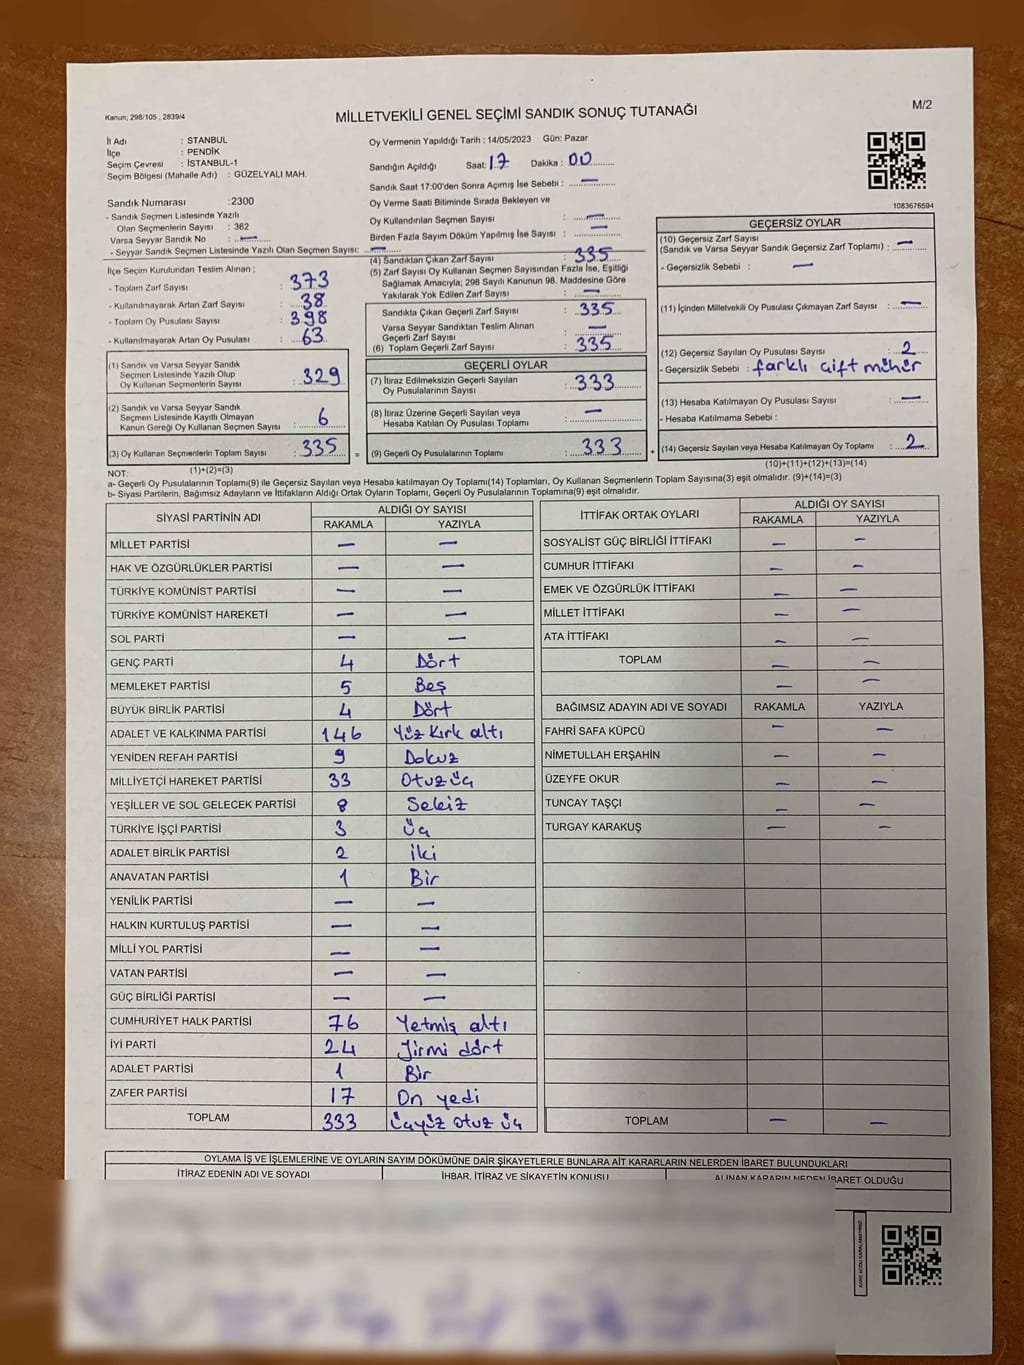 Kanun; 298/105 , 2839/4
MİLLETVEKİLİ GENEL SEÇİMİ SANDIK SONUÇ TUTANAĞI
M/2
İl Adı : STANBUL
İlçe : PENDİK
Seçim Çevresi : İSTANBUL-1
Seçim Bölgesi (Mahalle Adı) : GÜZELYALI MAH.
Oy Vermenin Yapıldığı Tarih : 14/05/2023 Gün: Pazar
Sandığın Açıldığı Saat: 17 Dakika : 00
Sandık Saat 17:00'den Sonra Açımış İse Sebebi : —
Oy Verme Saati Bitiminde Sırada Bekleyen ve
Oy Kullandırılan Seçmen Sayısı : —
Birden Fazla Sayım Döküm Yapılmış İse Sayısı : —
1083676594
Sandık Numarası : 2300
- Sandık Seçmen Listesinde Yazılı
Olan Seçmenlerin Sayısı : 362
Varsa Seyyar Sandık No : —
- Seyyar Sandık Seçmen Listesinde Yazılı Olan Seçmen Sayısı: —
İlçe Seçim Kurulundan Teslim Alınan ;
- Toplam Zarf Sayısı : 373
- Kullanılmayarak Artan Zarf Sayısı : 38
- Toplam Oy Pusulası Sayısı : 398
- Kullanılmayarak Artan Oy Pusulası : 63
(1) Sandık ve Varsa Seyyar Sandık
Seçmen Listesinde Yazılı Olup
Oy Kullanan Seçmenlerin Sayısı : 329
(2) Sandık ve Varsa Seyyar Sandık
Seçmen Listesinde Kayıtlı Olmayan
Kanun Gereği Oy Kullanan Seçmen Sayısı : 6
(3) Oy Kullanan Seçmenlerin Toplam Sayısı : 335 =
(4) Sandıktan Çıkan Zarf Sayısı : 335
(5) Zarf Sayısı Oy Kullanan Seçmen Sayısından Fazla İse, Eşitliği
Sağlamak Amacıyla; 298 Sayılı Kanunun 98. Maddesine Göre
Yakılarak Yok Edilen Zarf Sayısı : —
Sandıkta Çıkan Geçerli Zarf Sayısı : 335
Varsa Seyyar Sandıktan Teslim Alınan
Geçerli Zarf Sayısı : —
(6) Toplam Geçerli Zarf Sayısı : 335
GEÇERLİ OYLAR
(7) İtiraz Edilmeksizin Geçerli Sayılan
Oy Pusulalarının Sayısı : 333
(8) İtiraz Üzerine Geçerli Sayılan veya
Hesaba Katılan Oy Pusulası Toplamı : —
(9) Geçerli Oy Pusulalarının Toplamı : 333 +
GEÇERSİZ OYLAR
(10) Geçersiz Zarf Sayısı
(Sandık ve Varsa Seyyar Sandık Geçersiz Zarf Toplamı) : —
- Geçersizlik Sebebi : —
(11) İçinden Milletvekili Oy Pusulası Çıkmayan Zarf Sayısı : —
(12) Geçersiz Sayılan Oy Pusulası Sayısı : 2
- Geçersizlik Sebebi : farklı çift mühür
(13) Hesaba Katılmayan Oy Pusulası Sayısı : —
- Hesaba Katılmama Sebebi :
(14) Geçersiz Sayılan veya Hesaba Katılmayan Oy Toplamı : 2
NOT: (1)+(2)=(3)
(10)+(11)+(12)+(13)=(14)
a- Geçerli Oy Pusulalarının Toplamı(9) ile Geçersiz Sayılan veya Hesaba katılmayan Oy Toplamı(14) Toplamları, Oy Kullanan Seçmenlerin Toplam Sayısına(3) eşit olmalıdır. (9)+(14)=(3)
b- Siyasi Partilerin, Bağımsız Adayların ve İttifakların Aldığı Ortak Oyların Toplamı, Geçerli Oy Pusulalarının Toplamına(9) eşit olmalıdır.
SİYASİ PARTİNİN ADI ALDIĞI OY SAYISI
RAKAMLA YAZIYLA
MİLLET PARTİSİ — —
HAK VE ÖZGÜRLÜKLER PARTİSİ — —
TÜRKİYE KOMÜNİST PARTİSİ — —
TÜRKİYE KOMÜNİST HAREKETİ — —
SOL PARTİ — —
GENÇ PARTİ 4 Dört
MEMLEKET PARTİSİ 5 Beş
BÜYÜK BİRLİK PARTİSİ 4 Dört
ADALET VE KALKINMA PARTİSİ 146 Yüz kırk altı
YENİDEN REFAH PARTİSİ 9 Dokuz
MİLLİYETÇİ HAREKET PARTİSİ 33 Otuz üç
YEŞİLLER VE SOL GELECEK PARTİSİ 8 Sekiz
TÜRKİYE İŞÇİ PARTİSİ 3 Üç
ADALET BİRLİK PARTİSİ 2 İki
ANAVATAN PARTİSİ 1 Bir
YENİLİK PARTİSİ — —
HALKIN KURTULUŞ PARTİSİ — —
MİLLİ YOL PARTİSİ — —
VATAN PARTİSİ — —
GÜÇ BİRLİĞİ PARTİSİ — —
CUMHURİYET HALK PARTİSİ 76 Yetmiş altı
İYİ PARTİ 24 Yirmi dört
ADALET PARTİSİ 1 Bir
ZAFER PARTİSİ 17 On yedi
TOPLAM 333 Üçyüz otuz üç
İTTİFAK ORTAK OYLARI ALDIĞI OY SAYISI
RAKAMLA YAZIYLA
SOSYALİST GÜÇ BİRLİĞİ İTTİFAKI — —
CUMHUR İTTİFAKI — —
EMEK VE ÖZGÜRLÜK İTTİFAKI — —
MİLLET İTTİFAKI — —
ATA İTTİFAKI — —
TOPLAM — —
— —
BAĞIMSIZ ADAYIN ADI VE SOYADI RAKAMLA YAZIYLA
FAHRİ SAFA KÜPCÜ — —
NİMETULLAH ERŞAHİN — —
ÜZEYFE OKUR — —
TUNCAY TAŞÇI — —
TURGAY KARAKUŞ — —
TOPLAM — —
OYLAMA İŞ VE İŞLEMLERİNE VE OYLARIN SAYIM DÖKÜMÜNE DAİR ŞİKAYETLERLE BUNLARA AİT KARARLARIN NELERDEN İBARET BULUNDUKLARI
İTİRAZ EDENİN ADI VE SOYADI İHBAR, İTİRAZ VE ŞİKAYETİN KONUSU ALINAN KARARIN NEDEN İBARET OLDUĞU